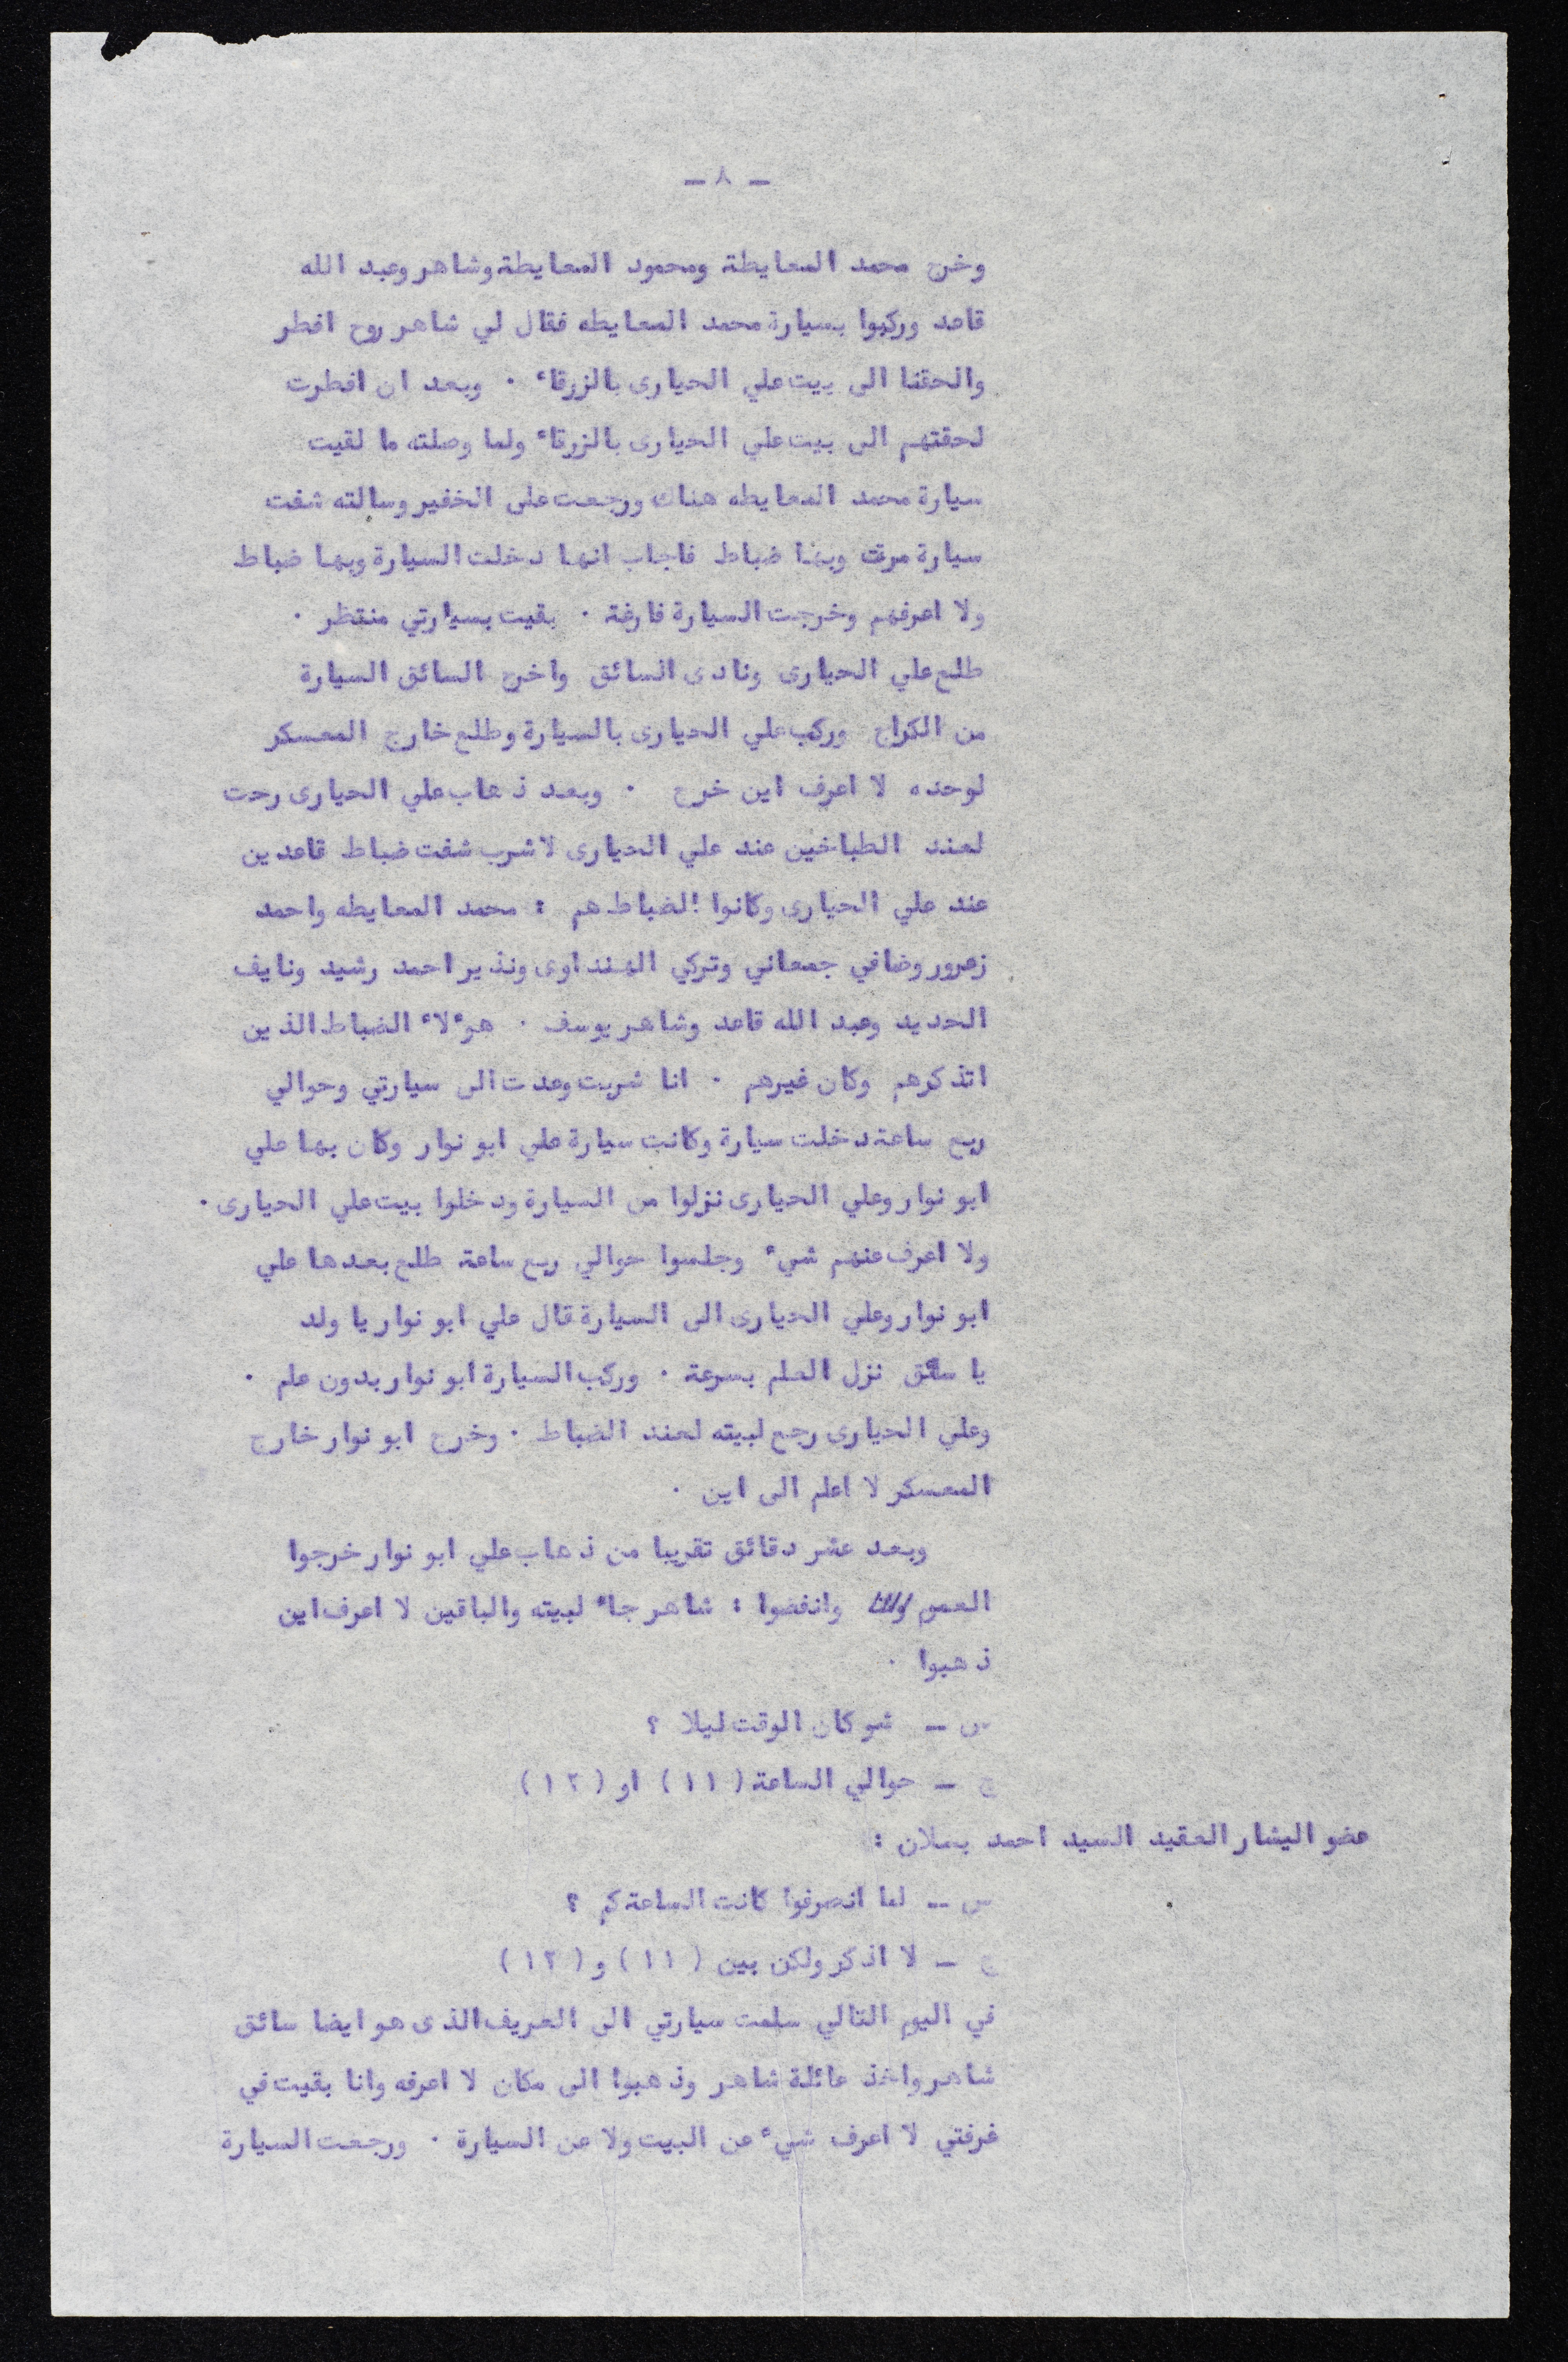 - ٨ -
وخرج محمد المعايطة ومحمود المعايطة وشاهر وعبد الله
قاعد وركبوا بسيارة محمد المعايطه فقال لي شاهر روح افطر
والحقنا الى بيت علي الحيارى بالزرقاء ٠ وبعد ان افطرت
لحقتهم الى بيت علي الحيارى بالزرقاء ولما وصلته ما لقيت
سيارة محمد المعايطه هناك ورجعت على الخفير وسالته شفت
سيارة مرقت وبها ضباط فاجاب انها دخلت السيارة وبها ضباط
ولا اعرفهم وخرجت السيارة فارغة ٠ بقيت بسيارتي منتظر ٠
طلع علي الحيارى ونادى السائق واخرج السائق السيارة
من الكراج وركب علي الحيارى بالسيارة وطلع خارج المعسكر
لوحده لا اعرف اين خرج ٠ وبعد ذهاب علي الحيارى رحت
لعند الطباخين عند علي الحيارى لاشرب شفت ضباط قاعدين
عند علي الحيارى وكانوا الضباط هم : محمد المعايطه واحمد
زعرور وضافي جمعاني وتركي الهنداوى ونذير احمد رشيد ونايف
الحديد وعبد الله قاعد وشاهر يوسف ٠ هوءلاء الضباط الذين
اتذكرهم وكان غيرهم ٠ انا شربت وعدت الى سيارتي وحوالي
ربع ساعة دخلت سيارة وكانت سيارة علي ابو نوار وكان بها علي
ابو نوار وعلي الحيارى نزلوا من السيارة ودخلوا بيت علي الحيارى ٠
ولا اعرف عنهم شيء وجلسوا حوالي ربع ساعة طلع بعدها علي
ابو نوار وعلي الحيارى الى السيارة قال علي ابو نوار يا ولد
يا سائق نزل العلم بسرعة ٠ وركب السيارة ابو نوار بدون علم ٠
وعلي الحيارى رجع لبيته لعند الضباط ٠ وخرج ابو نوار خارج
المعسكر لا اعلم الى اين ٠
وبعد عشر دقائق تقريبا من ذهاب علي ابو نوار خرجوا
العموم وانفضوا : شاهر جاء لبيته والباقين لا اعرف اين
ذهبوا ٠
س - شو كان الوقت ليلا ؟
ج - حوالي الساعة (١١) او (١٢)
عضو اليسار العقيد السيد احمد بسلان :
س - لما انصرفوا كانت الساعة كم ؟
ج - لا اذكر ولكن بين (١١) و (١٢)
في اليوم التالي سلمت سيارتي الى العريف الذى هو ايضا سائق
شاهر واخذ عائلة شاهر وذهبوا الى مكان لا اعرفه وانا بقيت في
غرفتي لا اعرف شيء عن البيت ولا عن السيارة ٠ ورجعت السيارة